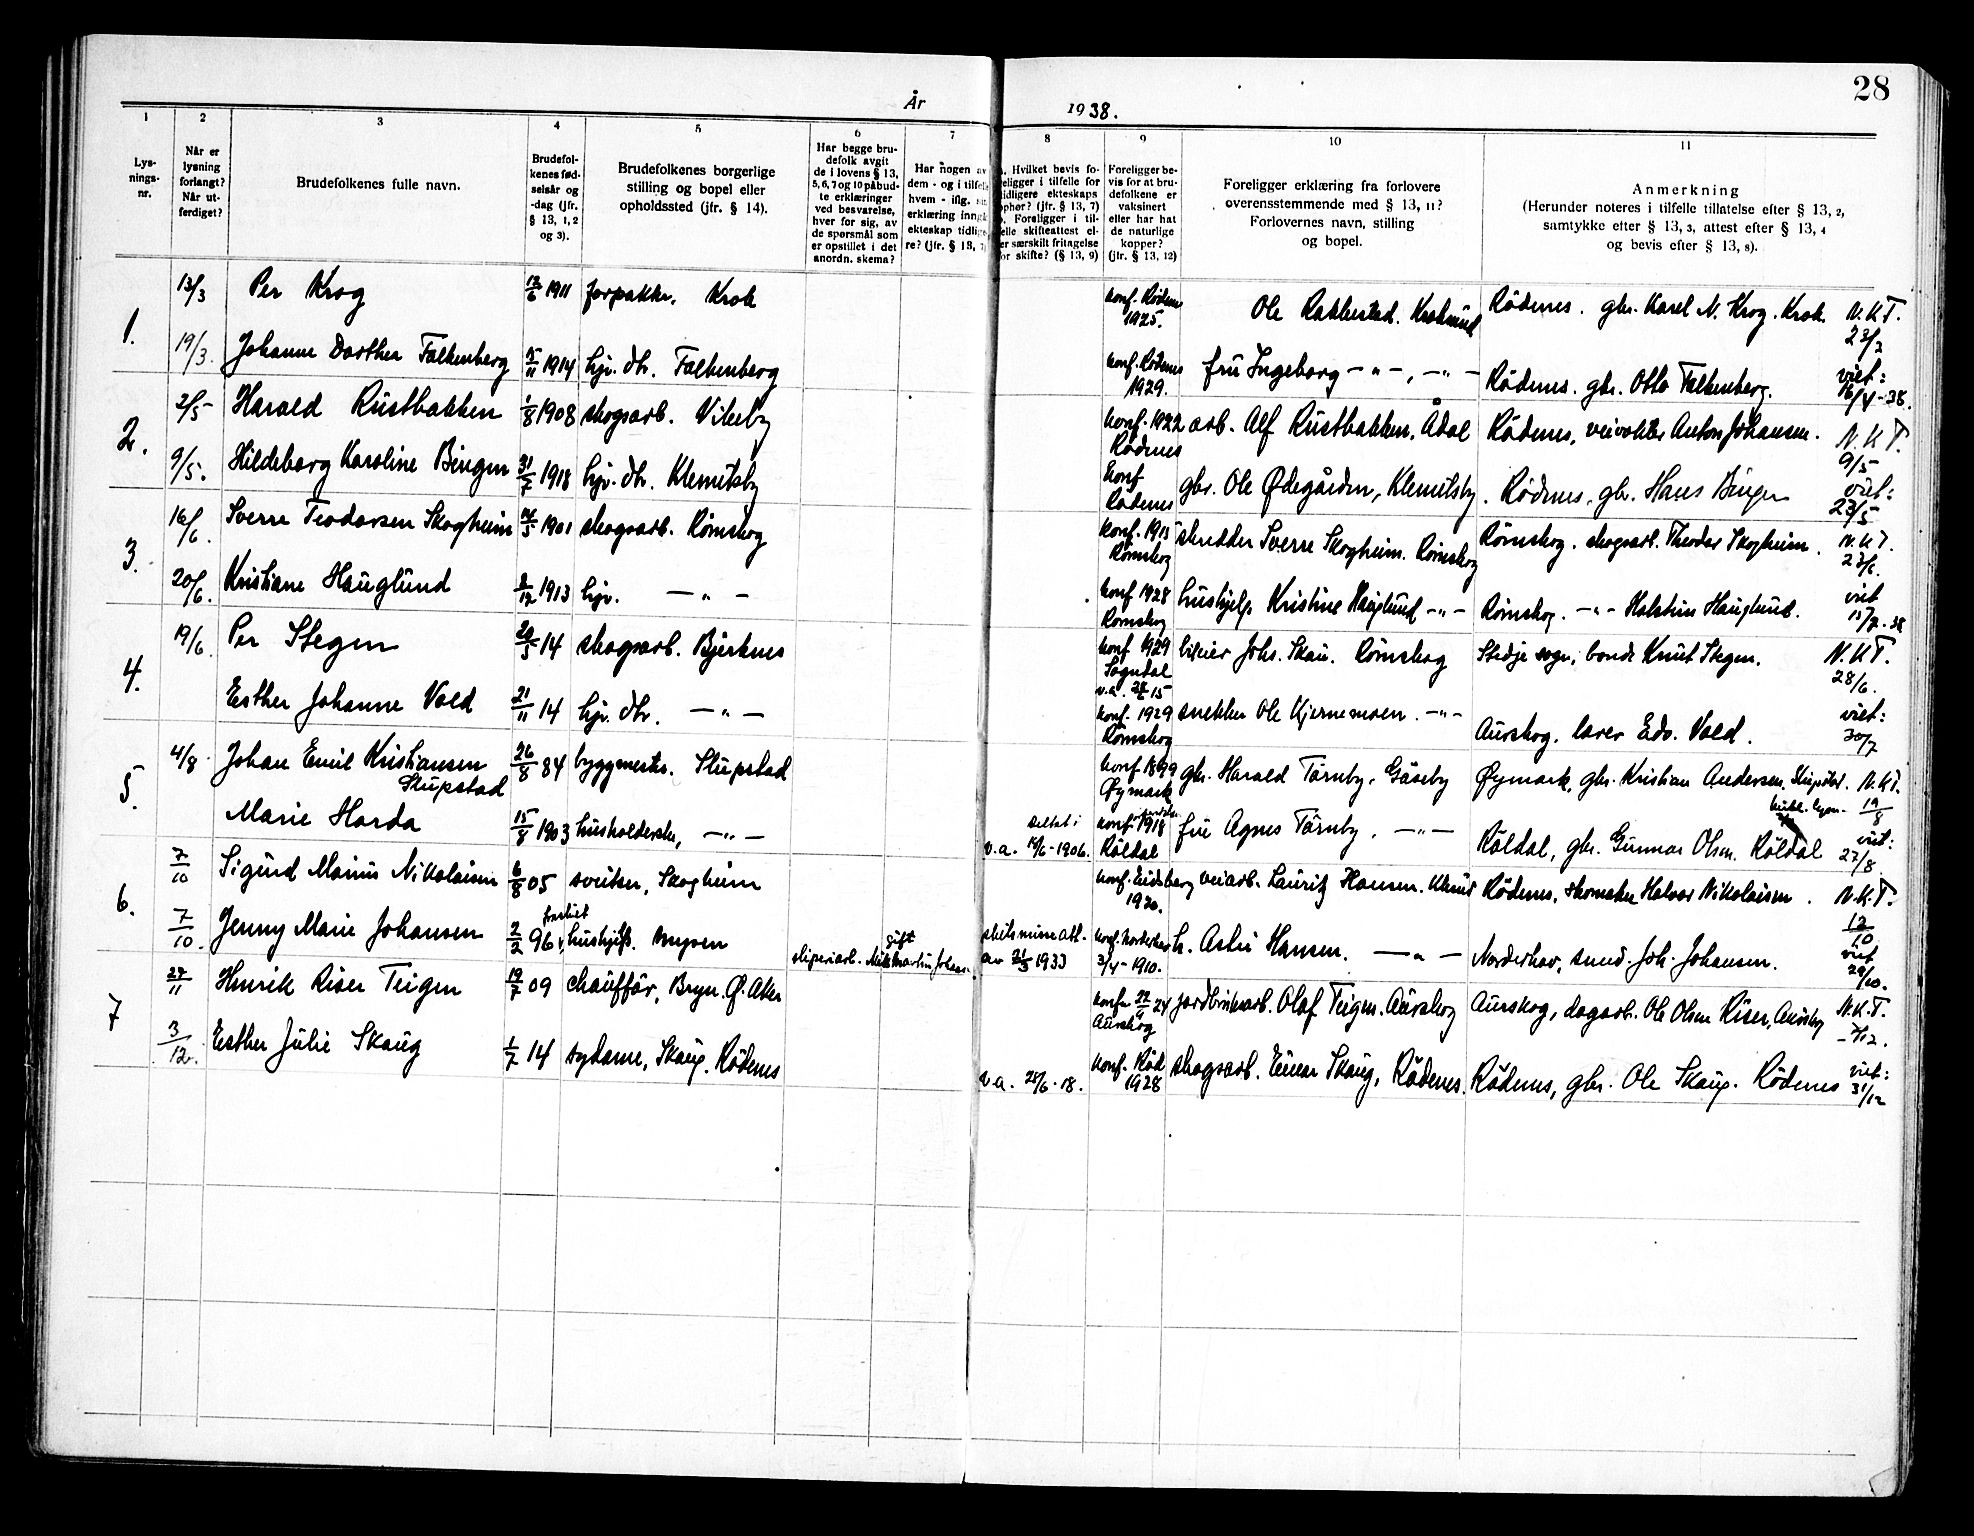 28
År 1938.
1 2 3 4 5 6 7 8 9 10 11
Lys-
nings-
nr.
Når er
lysning
forlangt?
Når ut-
ferdiget?
Brudefolkenes fulle navn.
Brudefol-
kenes fød-
selsår og
-dag (jfr.
§ 13, 1, 2
og 3).
Brudefolkenes borgerlige
stilling og bopel eller
opholdssted (jfr. § 14).
Har begge bru-
defolk avgit
de i lovens § 13,
5, 6, 7 og 10 påbud-
te erklæringer
ved besvarelse,
hver for sig, av
de spørsmål som
er opstillet i det
anordn. skema?
Har nogen av
dem - og i tilfelle
hvem - iflg.
erklæring inngå
ekteskap tidlige
re? (jfr. § 13,
Hvilket bevis fo-
religger i tilfelle for
tidligere ekteskaps
ophør? (jfr. § 13, 7)
Foreligger i til-
elle skifteattest el-
er særskilt fritagelse
or skifte? (§ 13, 9)
Foreligger be-
vis for at bru-
defolkene er
vaksinert
eller har hat
de naturlige
kopper?
(jfr. § 13, 12)
Foreligger erklæring fra forlovere
overensstemmende med § 13, 11?
Forlovernes navn, stilling
og bopel.
Anmerkning
(Herunder noteres i tilfelle tillatelse efter § 13, 2,
samtykke efter § 13, 3, attest efter § 13, 4
og bevis efter § 13, 8).
1. 13/3 Per Krog 12/6 1911 forpakter. Krok konf. Rødenes 1925. Ole Rakkestad. Krokmud Rödenes. gbr. Karel N. Krog. Krok. N.K.T. 23/3
19/3. Johanne Dorthea Falkenberg 15/11 1914 hjv. dtr. Falkenberg konf. Rødenes 1929. fru Ingeborg —"—, —"— Rødenes. gbr. Otto Falkenberg. viet: 16/4-38.
2. 2/5 Harald Rustbakken 1/8 1908 skogsarb. Vikeby konf. 1922 Rødenes arb. Alf Rustbakken, Ådal Rødenes, veivokter Anton Johansen. N.K.T. 9/5
9/5. Hildeborg Karoline Bingen 31/7 1918 hjv. dtr. Klemitsby konf Rødenes gbr. Ole Ødegården, Klemitsby. Rødenes, gbr. Hans Bingen viet: 23/5
3. 16/6 Sverre Teodorsen Skogheim 14/5 1901 skogsarb. Rømskog konf. 1915 Rømskog skredder Sverre Skogheim. Rømskog Rømskog. skogsarb. Theodor Skogheim. N.K.T. 23/6.
20/6. Kristiane Hauglund 2/12 1913 hjv. —"— konf 1928 Rømskog hushjelp Kristine Hauglund —"— Rømskog. —"— Halstein Hauglund. viet 15/7-38
4. 19/6 Per Stegen 20/5 14 skogsarb. Bjerknes konf 1929 Sogndal bileier Johs. Skau. Rømskog Stedje sogn, bonde Knut Stegen. N.K.T. 28/6.
Esther Johanne Vold 21/11 14 hjv. dtr. —"— konf. 1929 Rømskog snekker Ole Kjernemoen. —"— Aurskog. lærer Edv. Vold. viet: 30/7
5. 4/8 Johan Emil Kristiansen
Slupstad 26/8 84 byggmester. Slupstad konf 1899 Øymark gbr. Harald Törnby. Gåseby Øymark, gbr. Kristian Andersen, Slupstad. N.K.T. 19/8
Marie Harda 15/8 1903 husholderske, —"— v.a. 14/6-1906. konf. 1918 Röldal fru Agnes Törnby. —"— Röldal, gbr. Gunnar Olsen. Röldal viet: 27/8
6. 7/10 Sigurd Marius Nikolaisen 6/8 05 sveiser, Skogheim konf. Eidsberg 1920. veiarb. Lauritz Hansen. Rödenes. skomaker Halvor Nikolaisen. N.K.T. 12/10
7/10. Jenny Marie Johansen 2/2 96 fraskilt hushjelp. Mysen gift av 21/3 1933 3/4-1910. Hansen. —"— Norderhov, smed. Joh. Johansen. viet 29/10.
7 27/11 Henrik Riser Teigen 19/7 09 chauffør, Bryn. Ø. Aker konf. Aurskog jordbruksarb. Olaf Teigen. Aurskog Aurskog, dagarb. Ole Olsen Riser, Aursby N.K.T. 3/12.
3/12. Esther Julie Skaug 1/7 14 sydame, Skaug. Rødenes v.a. 25/6-18. konf. Röd 1928 skogsarb. Einar Skaug, Rödenes. Rödenes, gbr. Ole Skaug. Rödenes viet: 31/12